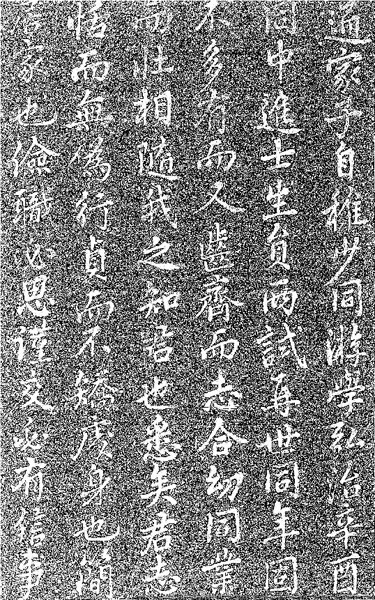 通家子自稚少同游學弘治辛酉
同中進士生員兩試再世同年固
不多有而又齒齊而志合幼同業
而壯相隨我之知君也悉矣君志
恬而無偽行貞而不矯處身也簡
居家也儉職必思謹交必有信事